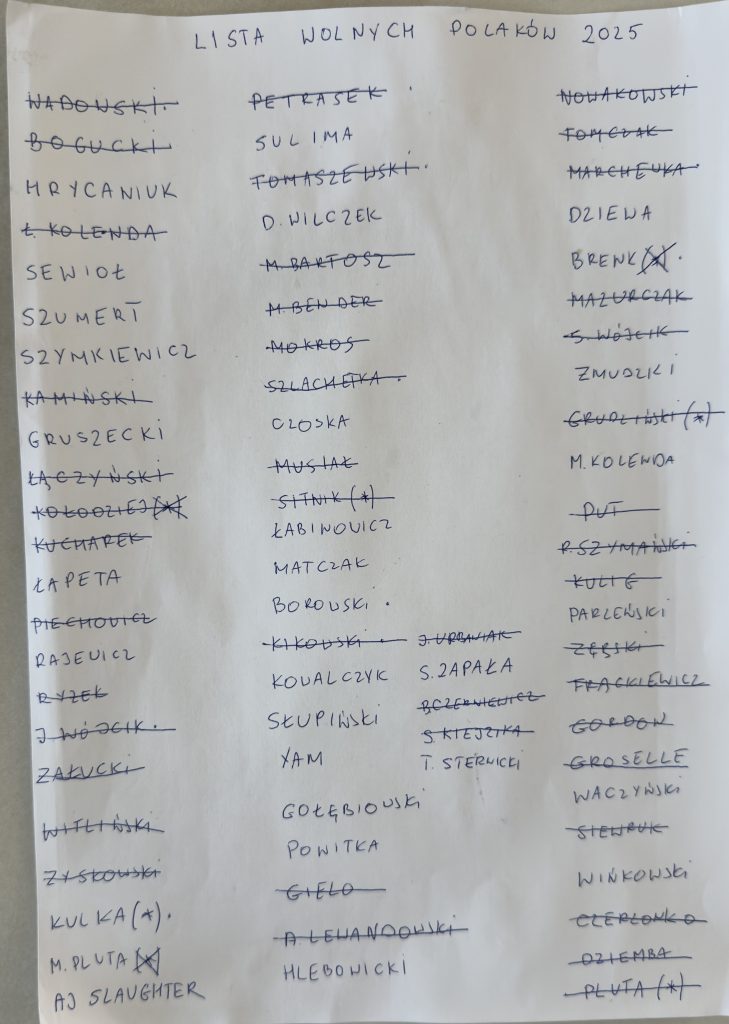 LISTA WOLNYCH POLAKÓW 2025
WADOWSKI.
BOGUCKI
HRYCANIUK
Ł. KOLENDA
SEWIOŁ
SZUMERT
SZYMKIEWICZ
KAMIŃSKI
GRUSZECKI
ŁĄCZYŃSKI
KOŁODZIEJ (*)
KUCHAREK
ŁAPETA
PIECHOWICZ
RAJEWICZ
RYŻEK
J. WÓJCIK.
ZAŁUCKI
WITLIŃSKI
ZYSKOWSKI
KULKA (*).
M. PLUTA (*)
AJ SLAUGHTER
PETRASEK .
SULIMA
TOMASZEWSKI.
D. WILCZEK
M. BARTOSZ
M. BENDER
MOKROS
SZLACHETKA .
CZOSKA
MUSIAŁ
SITNIK (*)
ŁABINOWICZ
MATCZAK
BOROWSKI .
KIKOWSKI .
KOWALCZYK
SŁUPIŃSKI
YAM
GOŁĘBIOWSKI
POWITKA
GIELO
A. LEWANDOWSKI
HLEBOWICKI
J. URBANIAK
S. ZAPAŁA
B. CZERNIEWICZ
S. KIEJZIKA
T. STERNICKI
NOWAKOWSKI
TOMCZAK
MARCHEWKA .
DZIEWA
BRENK (*) .
MAZURCZAK
S. WÓJCIK
ZMUDZKI
GRUDZIŃSKI (*)
M. KOLENDA
PUT
R. SZYMAŃSKI
KULIG
PARZEŃSKI
ZĘBSKI
FRĄCKIEWICZ
GORDON
GROSELLE
WACZYŃSKI
SIEWRUK
WIŃKOWSKI
CZERLONKO
DZIEMBA
PLUTA (*)